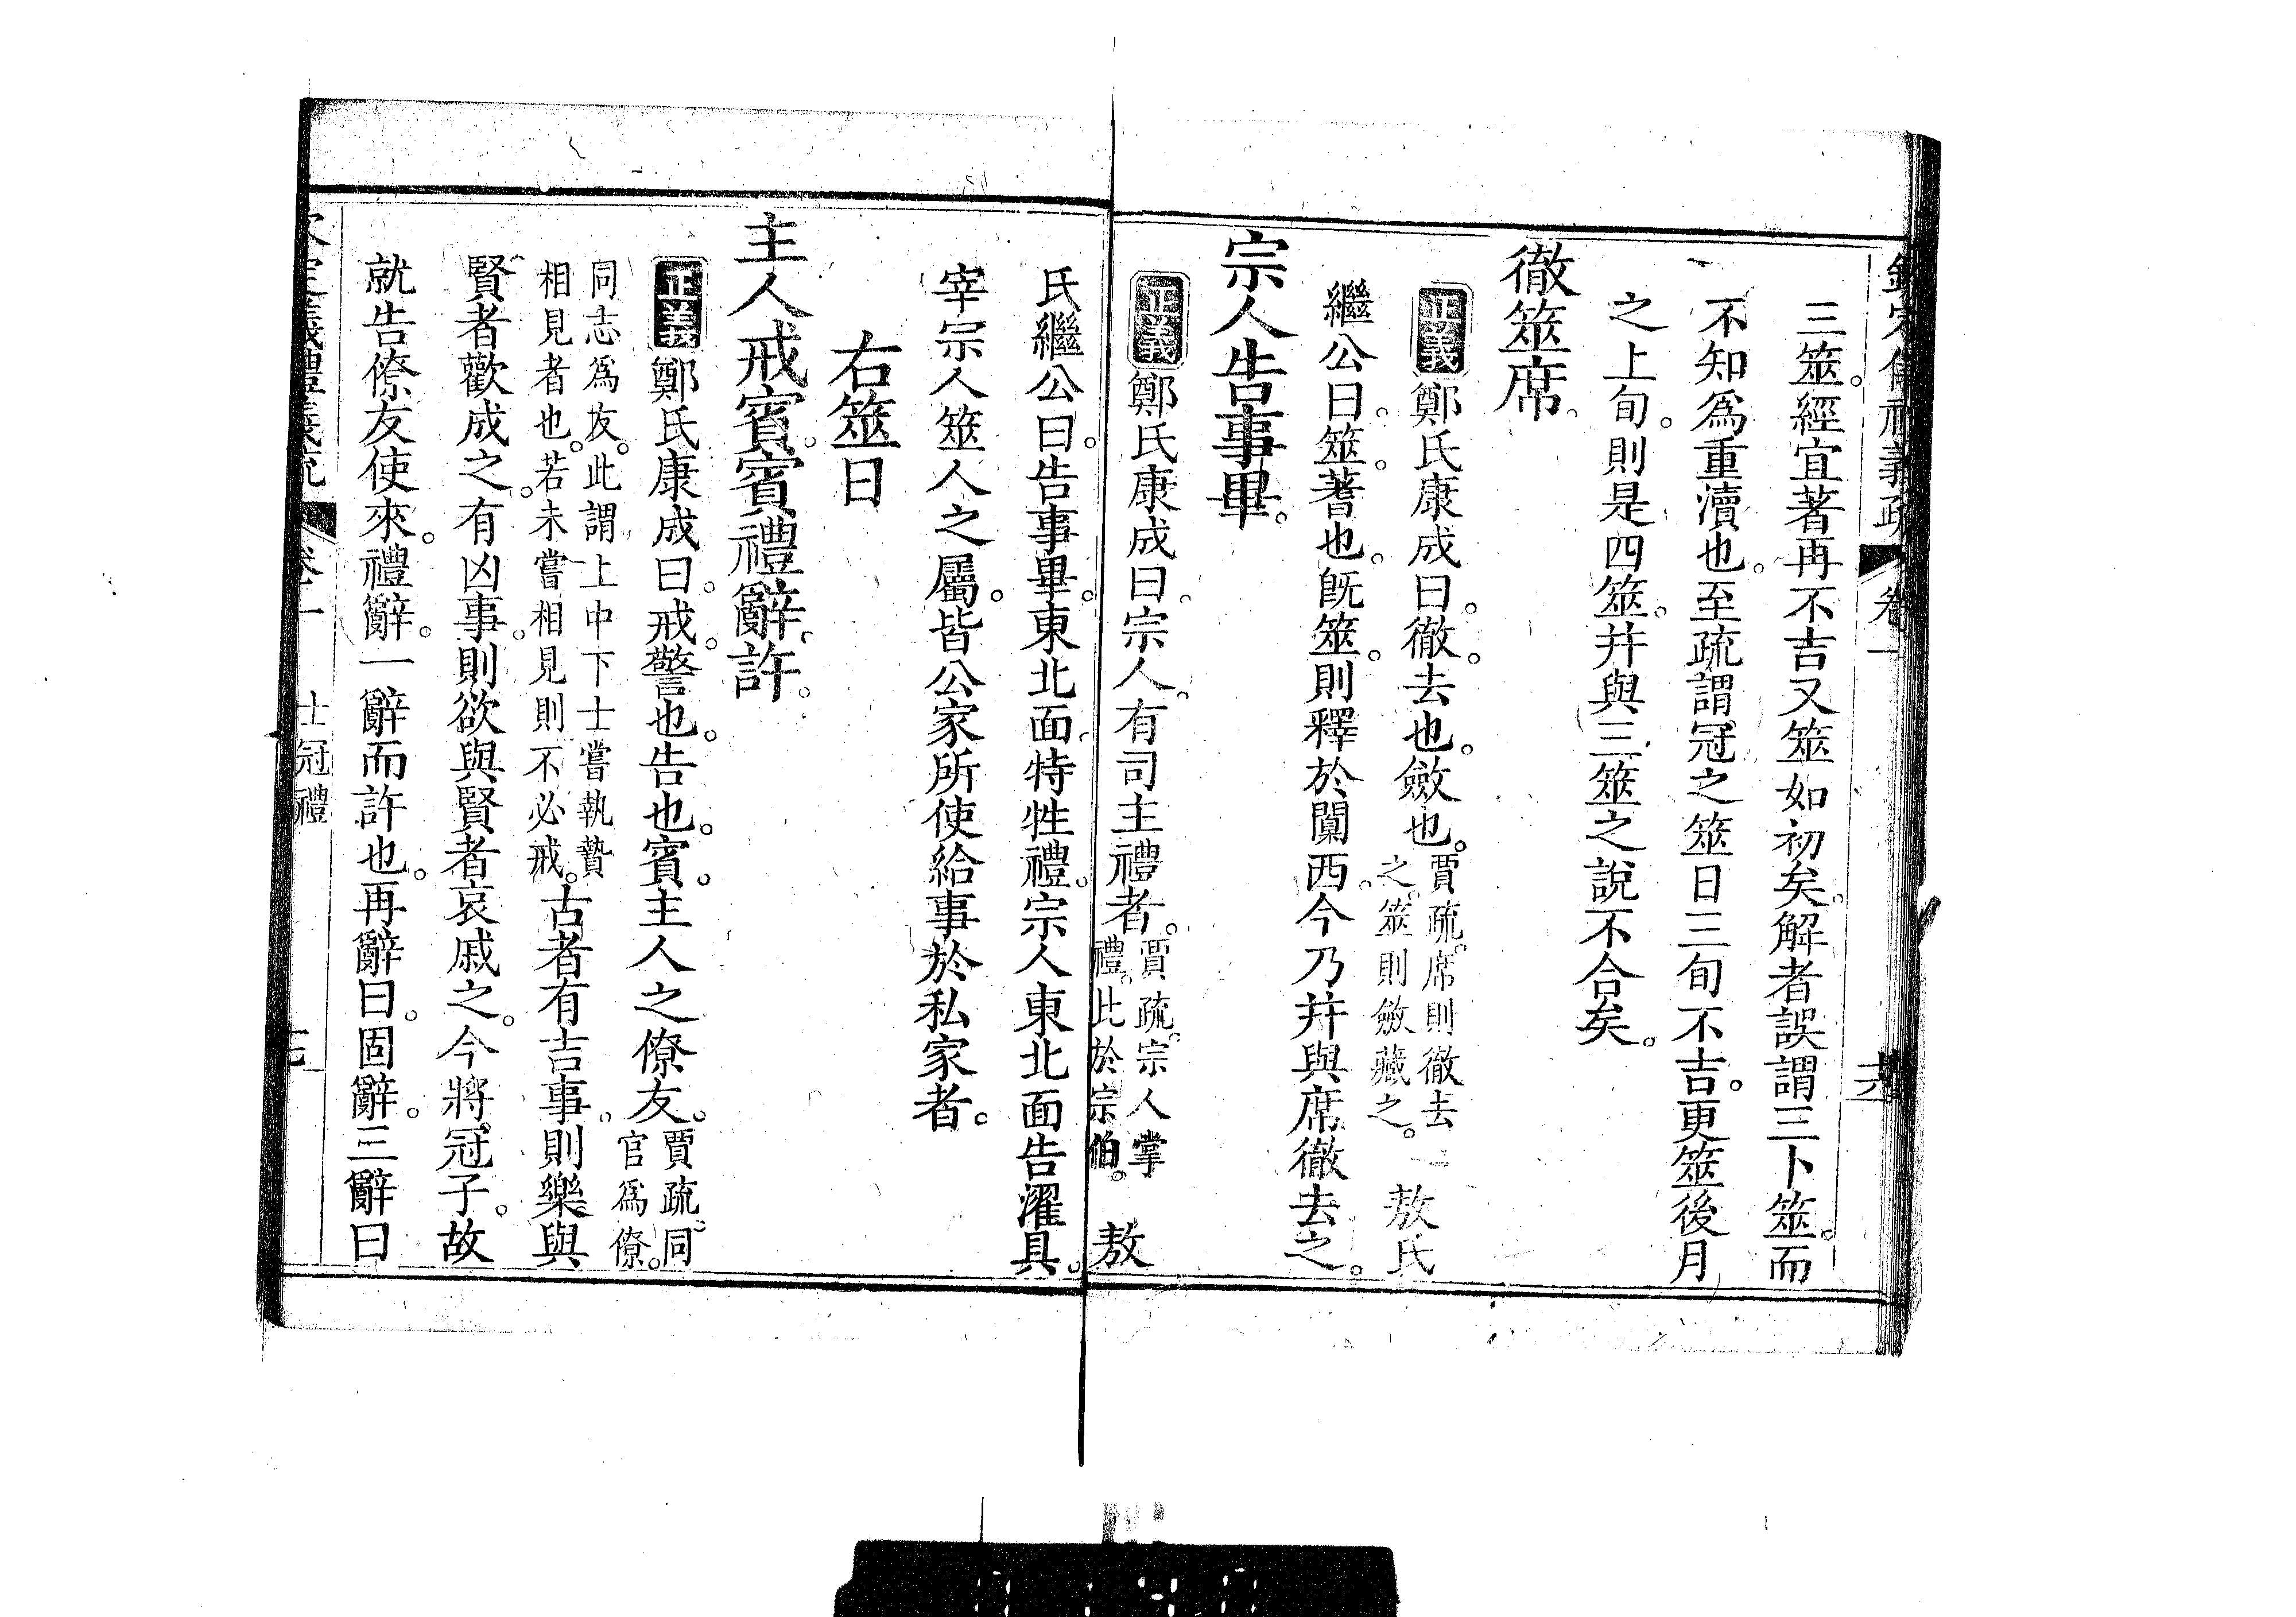 欽定儀禮義疏 卷一
三筮。經宜著再不吉又筮如初矣。解者誤謂三卜筮。而
不知爲重瀆也。至疏謂冠之筮日三旬不吉。更筮後月
之上旬。則是四筮。幷與三筮之說不合矣。
徹筮席。
正義鄭氏康成曰。徹。去也。斂也。賈疏。席則徹去之。筮則斂藏之。 敖氏
繼公曰。筮。蓍也。旣筮。則釋於闑西。今乃幷與席徹去之。
宗人告事畢。
正義鄭氏康成曰。宗人。有司主禮者。賈疏。宗人掌禮。比於宗伯。 敖
氏繼公曰。告事畢。東北面。特牲禮。宗人東北面告濯具。
宰宗人筮人之屬。皆公家所使給事於私家者。
右筮日
主人戒賓。賓禮辭。許。
正義鄭氏康成曰。戒。警也。告也。賓。主人之僚友。賈疏。同官爲僚。
同志爲友。此謂上中下士嘗執贄相見者也。若未嘗相見則不必戒。古者有吉事。則樂與
賢者歡成之。有凶事。則欲與賢者哀戚之。今將冠子。故
就告僚友使來。禮辭。一辭而許也。再辭曰。固辭。三辭曰
欽定儀禮義疏 卷一 士冠禮